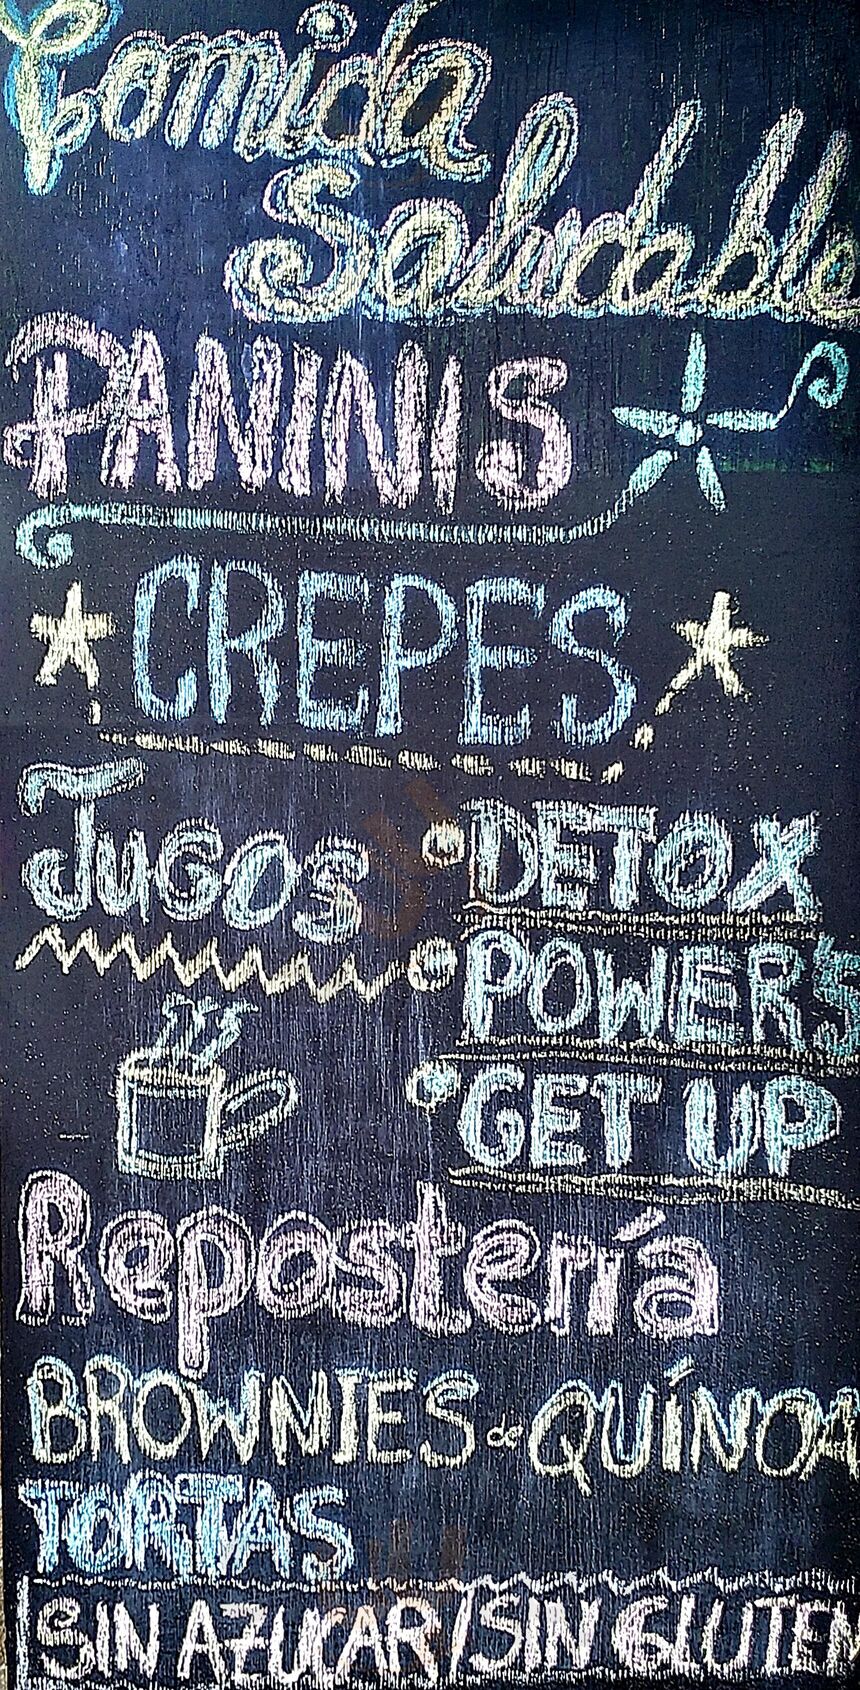 Comida
Saludable
PANINIS
CREPES
JUGOS
• DETOX
• POWER'S
• GET UP
Repostería
BROWNIES de QUÍNOA
TORTAS
SIN AZUCAR/SIN GLUTEN